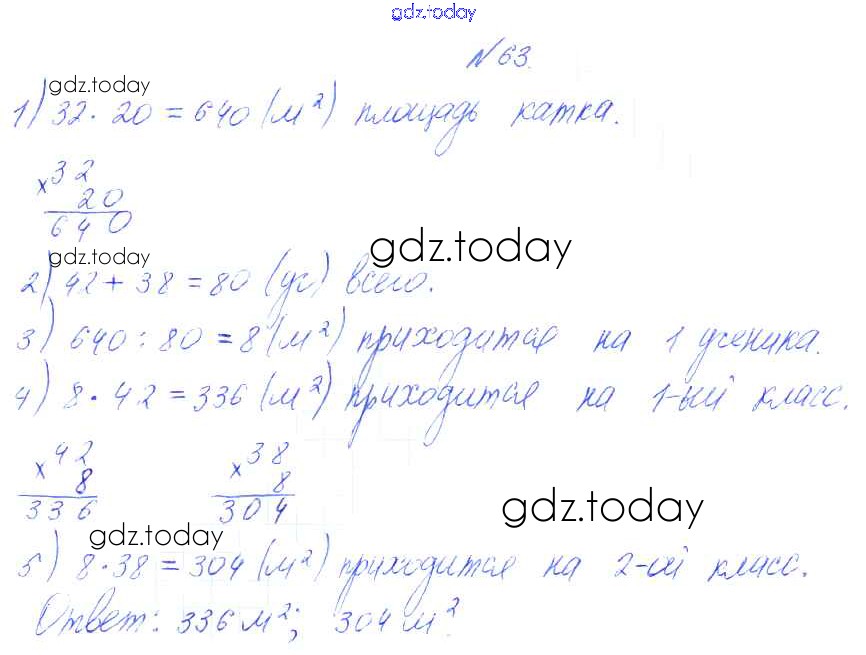 gdz.today
№63.
gdz.today
1) 32 · 20 = 640 (м²) площадь катка.
× 32
20
640
gdz.today
gdz.today
2) 42 + 38 = 80 (уч) всего.
3) 640 : 80 = 8 (м²) приходится на 1 ученика.
4) 8 · 42 = 336 (м²) приходится на 1-ый класс.
× 42 × 38
8 8
336 304
gdz.today
gdz.today
5) 8 · 38 = 304 (м²) приходится на 2-ой класс.
Ответ: 336 м²; 304 м².